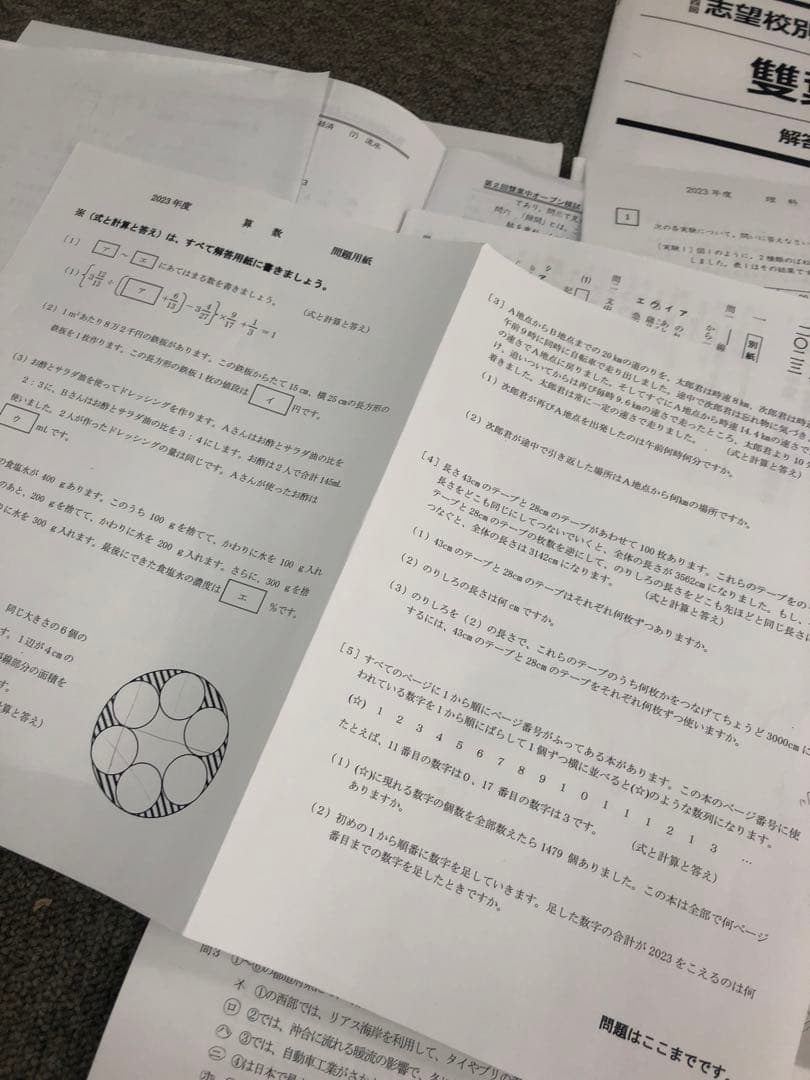 志望校別
雙
解答
経済 (7) 流氷
第2回雙葉中オープン模試
2023年度 理科
1
次の各実験について、問いに答えなさい
(実験1) 図1のように、2種類のばね
しました。表1はその結果です
二〇二三
別紙
2023年度 算数 問題用紙
※(式と計算と答え)は、すべて解答用紙に書きましょう。
[1] ア ~ エ にあてはまる数を書きましょう。 (式と計算と答え)
(2) 1㎡あたり8万2千円の鉄板があります。この鉄板からたて15㎝、横25㎝の長方形の
鉄板を1枚作ります。この長方形の鉄板1枚の値段は イ 円です。
(3) お酢とサラダ油を使ってドレッシングを作ります。Aさんはお酢とサラダ油の比を
2:3に、Bさんはお酢とサラダ油の比を3:4にします。お酢は2人で合計145mL
使いました。2人が作ったドレッシングの量は同じです。Aさんが使ったお酢は
ウ mLです。
の食塩水が400gあります。このうち100gを捨てて、かわりに水を100g入れ
のあと、200gを捨てて、かわりに水を200g入れます。さらに、300gを捨
りに水を300g入れます。最後にできた食塩水の濃度は エ %です。
同じ大きさの6個の
す。1辺が4㎝の
線部分の面積を
す。
計算と答え)
[3] A地点からB地点までの20㎞の道のりを、太郎君は時速8㎞、次郎君は時速
午前9時に同時に自転車で走り出しました。途中で次郎君は忘れ物に気づき、
の速さでA地点に戻りました。そしてすぐにA地点から時速14.4㎞の速さで
け、追いついてからは再び毎時9.6㎞の速さで走ったところ、太郎君より10分
着きました。太郎君は常に一定の速さで走りました。 (式と計算と答え)
(1) 次郎君が再びA地点を出発したのは午前何時何分ですか。
(2) 次郎君が途中で引き返した場所はA地点から何㎞の場所ですか。
[4] 長さ43㎝のテープと28㎝のテープがあわせて100枚あります。これらのテープをの
長さをどこも同じにしてつないでいくと、全体の長さが3562㎝になりました。もし、
テープと28㎝のテープの枚数を逆にして、のりしろの長さをどこも先ほどと同じ長さに
つなぐと、全体の長さは3142㎝になります。 (式と計算と答え)
(1) 43㎝のテープと28㎝のテープはそれぞれ何枚ずつありますか。
(2) のりしろの長さは何㎝ですか。
(3) のりしろを(2)の長さで、これらのテープのうち何枚かをつなげてちょうど3000㎝に
するには、43㎝のテープと28㎝のテープをそれぞれ何枚ずつ使いますか。
[5] すべてのページに1から順にページ番号がふってある本があります。この本のページ番号に使
われている数字を1から順にばらして1個ずつ横に並べると(☆)のような数列になります。
(☆) 1 2 3 4 5 6 7 8 9 1 0 1 1 1 2 1 3 …
たとえば、11番目の数字は0、17番目の数字は3です。 (式と計算と答え)
(1) (☆)に現れる数字の個数を全部数えたら1479個ありました。この本は全部で何ページ
ありますか。
(2) 初めの1から順番に数字を足していきます。足した数字の合計が2023をこえるのは何
番目までの数字を足したときですか。
問題はここまでです。
問3
イ ①の西部では、リアス海岸を利用して、タイやブリの
ロ ②では、沖合に流れる暖流の影響で、
ハ ③では、自動車工業がさか
ニ ④は日本で最